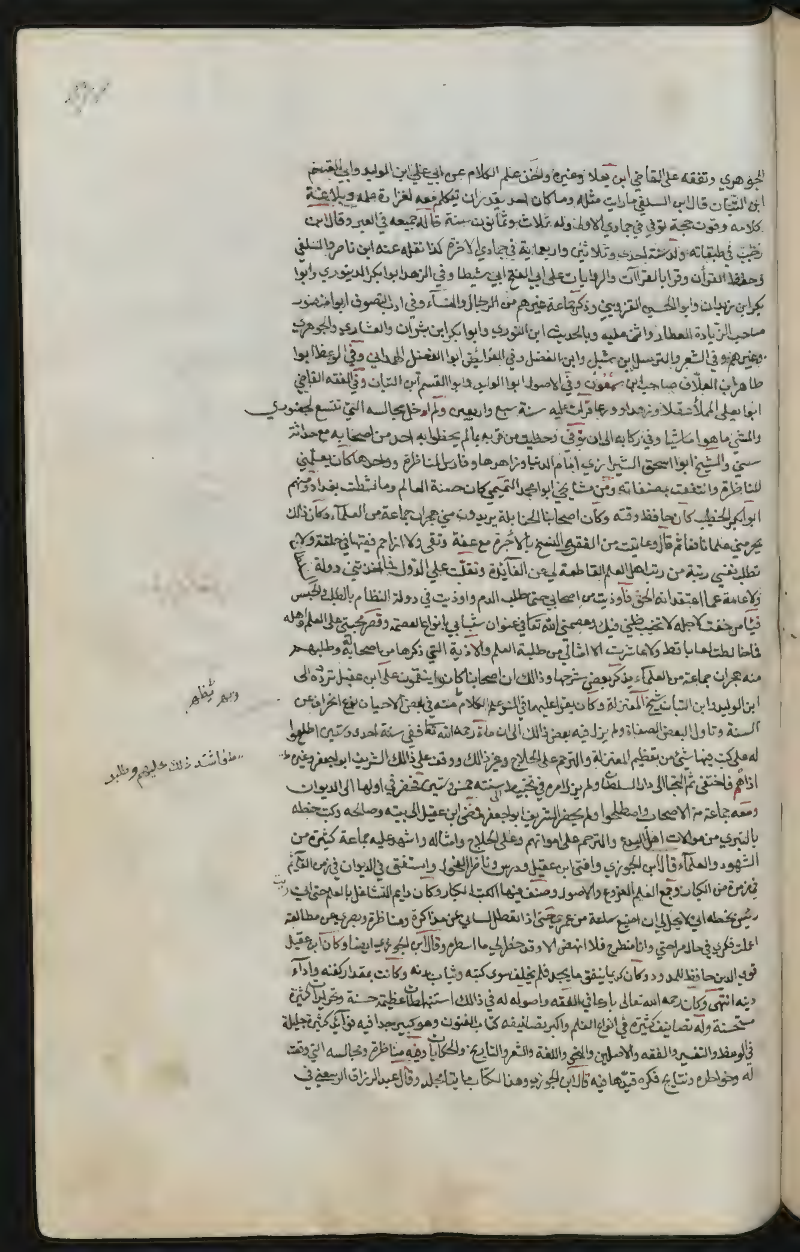 الجوهري وتفقه على القاضي ابن يعلا وغيره واخذ علم الكلام عن ابي علي ابن الوليد وابي القسم
ابن التبان قال ابن السلفي ما رات مثله وما كان احد يقدر ان يتكلم معه لغزارة علمه وبلاغة
كلامه وقوت حجته توفي في جمادي الاولى وله ثلاث وثمانون سنة قاله جميعه في العبر وقال ابن
رجب في طبقاته ولد سنة احدى وثلاثين واربعماية في جمادي الاخرة كذا نقله عنه ابن ناصر والسلفي
وحفظ القرآن وقرا بالقراآت والروايات على ابي الفتح ابن شيطا وفي الزهد ابوا بكر الدينوري وابوا
بكر ابن زيدان وابوا الحسين القزويني وذكر جماعة غيرهم من الرجال والنسآء وفي اداب التصوف ابوا منصور
صاحب الزيادة العطار واثنى عليه وبالحديث ابن التوري وابوا بكر ابن بشران والعشاري والجوهري
وغيرهم وفي الشعر والترسل ابن شبل وابن الفضل وفي الفرايض ابوا الفضل الهمداني وفي الوعظ ابوا
طاهر ابن العلاف صاحب ابن سمعون وفي الاصول ابوا الوليد وابوا القسم ابن التبان وفي الفقه القاضي
ابوا يعلى المملؤ عقلا وزهدا وورعا قرات عليه سنة سبع واربعين ولم ادخل بمجالسه التي تتسع لحضوري
والمشي معه ماشيا وفي ركابه الى ان توفي وحظيت من قربه بما لم يحظوا به احد من اصحابه مع حداثة
سني والشيخ ابوا اسحق الشيرازي امام الدنيا وزاهدها وفارس المناظرة وواحدها كان يعلمني
المناظرة وانتفعت بمصنفاته ومن مشايخي ابوا محمد التميمي كان حسنة العالم وماشطت بغداد ومنهم
ابوا بكر الخطيب كان حافظ وقته وكان اصحابنا الحنابلة يريدون مني هجران جماعة من العلمآء وكان ذلك
يحرمني علما نافعا ثم قال وعانيت من الفقر والنسخ بالاجرة مع عفة وتقى ولا ازاحم فقيها في حلقة ولا
تطلب نفسي رتبة من رتب اهل العلم القاطعة لي عن الفايدة وتقلبت علي الدول فما اخذتني دولة
ولا عامة عما اعتقد انه الحق فأوذيت من اصحابي حتى طلب الدم واوذيت في دولة النظام بالطلب والحبس
فيا من خفت لاجله لا تخيب ظني فيك وعصمني الله تعالى في عنوان شبابي بانواع العصمة وقصر محبتي على العلم واهله
فما خالطت لعابا قط ولا عاشرت الا امثالي من طلبة العلم والاذية التي ذكرها من اصحابه له وطلبهم
منه هجران جماعة من العلمآء يذكر بعض شرحها وذلك ان اصحابنا كانوا ينقمون على ابن عقيل تردده الى
ابن الوليد وابن التبان شيخ المعتزلة وكان يقرا عليهما في السر علم الكلام ويظهر منه في بعض الاحيان نوع انحراف عن
السنة وتاول لبعض الصفاة ولم يزل فيه بعض ذالك الى ان مات رحمه الله تعالى ففي سنة احدى وستين اطلعوا
له على كتب فيها شيء من تعظيم المعتزلة والترحم على الحلاج وغير ذالك ووقف على ذالك الشريف ابوا جعفر وغيره
اذاهم فاختفى ثم التجا الى دار السلطان ولم يزل امره في تخبيط الى سنة خمس وستين فحضر في اولها الى الديوان
ومعه جماعة من الاصحاب واصطلحوا ولم يحضر الشريف ابوا جعفر فمضى ابن عقيل الى بيته وصالحه وكتب خطه
بالتبري من موالات اهل البدع والترحم على امواتهم وعلى الحلاج وامثاله واشهد عليه جماعة كثيرة من
الشهود والعلمآء قال ابن الجوزي وافتى ابن عقيل ودرس وناظر الفحول واستفتى في الديوان في زمن القآئم
في زمرة من الكبار وجمع العلم الفروع والاصول وصنف فيها الكتب الكبار وكان دايم التشاغل بالعلم حتى اني رايت
بخطه اني لا يحل لي ان اضيع ساعة من عمري حتى اذا تعطل لساني عن مذاكرة ومناظرة وبصري عن مطالعة
اعملت فكري في حال راحتي وانا منطرح فلا انهض الا وقد خطر لي ما اسطره وقال ابن الجوزي ايضا وكان ابن عقيل
قوي الدين حافظا للحدود وكان كريما ينفق ما يجد فلم يخلف سوى كتبه وثياب بدنه وكانت بمقدار كفنه وادآء
دينه انتهى وكان رحمه الله تعالى بارعا في الفقه واصوله له في ذالك استنباطات عظيمة حسنة وتحريرات كثيرة
مستحسنة وله تصانيف كثيرة في انواع العلم واكبر تصانيفه كتاب الفنون وهو كبير جدا فيه فوآئد كثيرة جليلة
في الوعظ والتفسير والفقه والاصلين والنحو واللغة والشعر والتاريخ والحكايات وفيه مناظراته ومجالسه التي وقعت
له وخواطره ونتايج فكره قيدها فيه قال ابن الجوزي وهذا الكتاب مايتا مجلد وقال عبد الرزاق الرسعني في
ويظهر
فاشتد ذلك عليهم وطلبوا